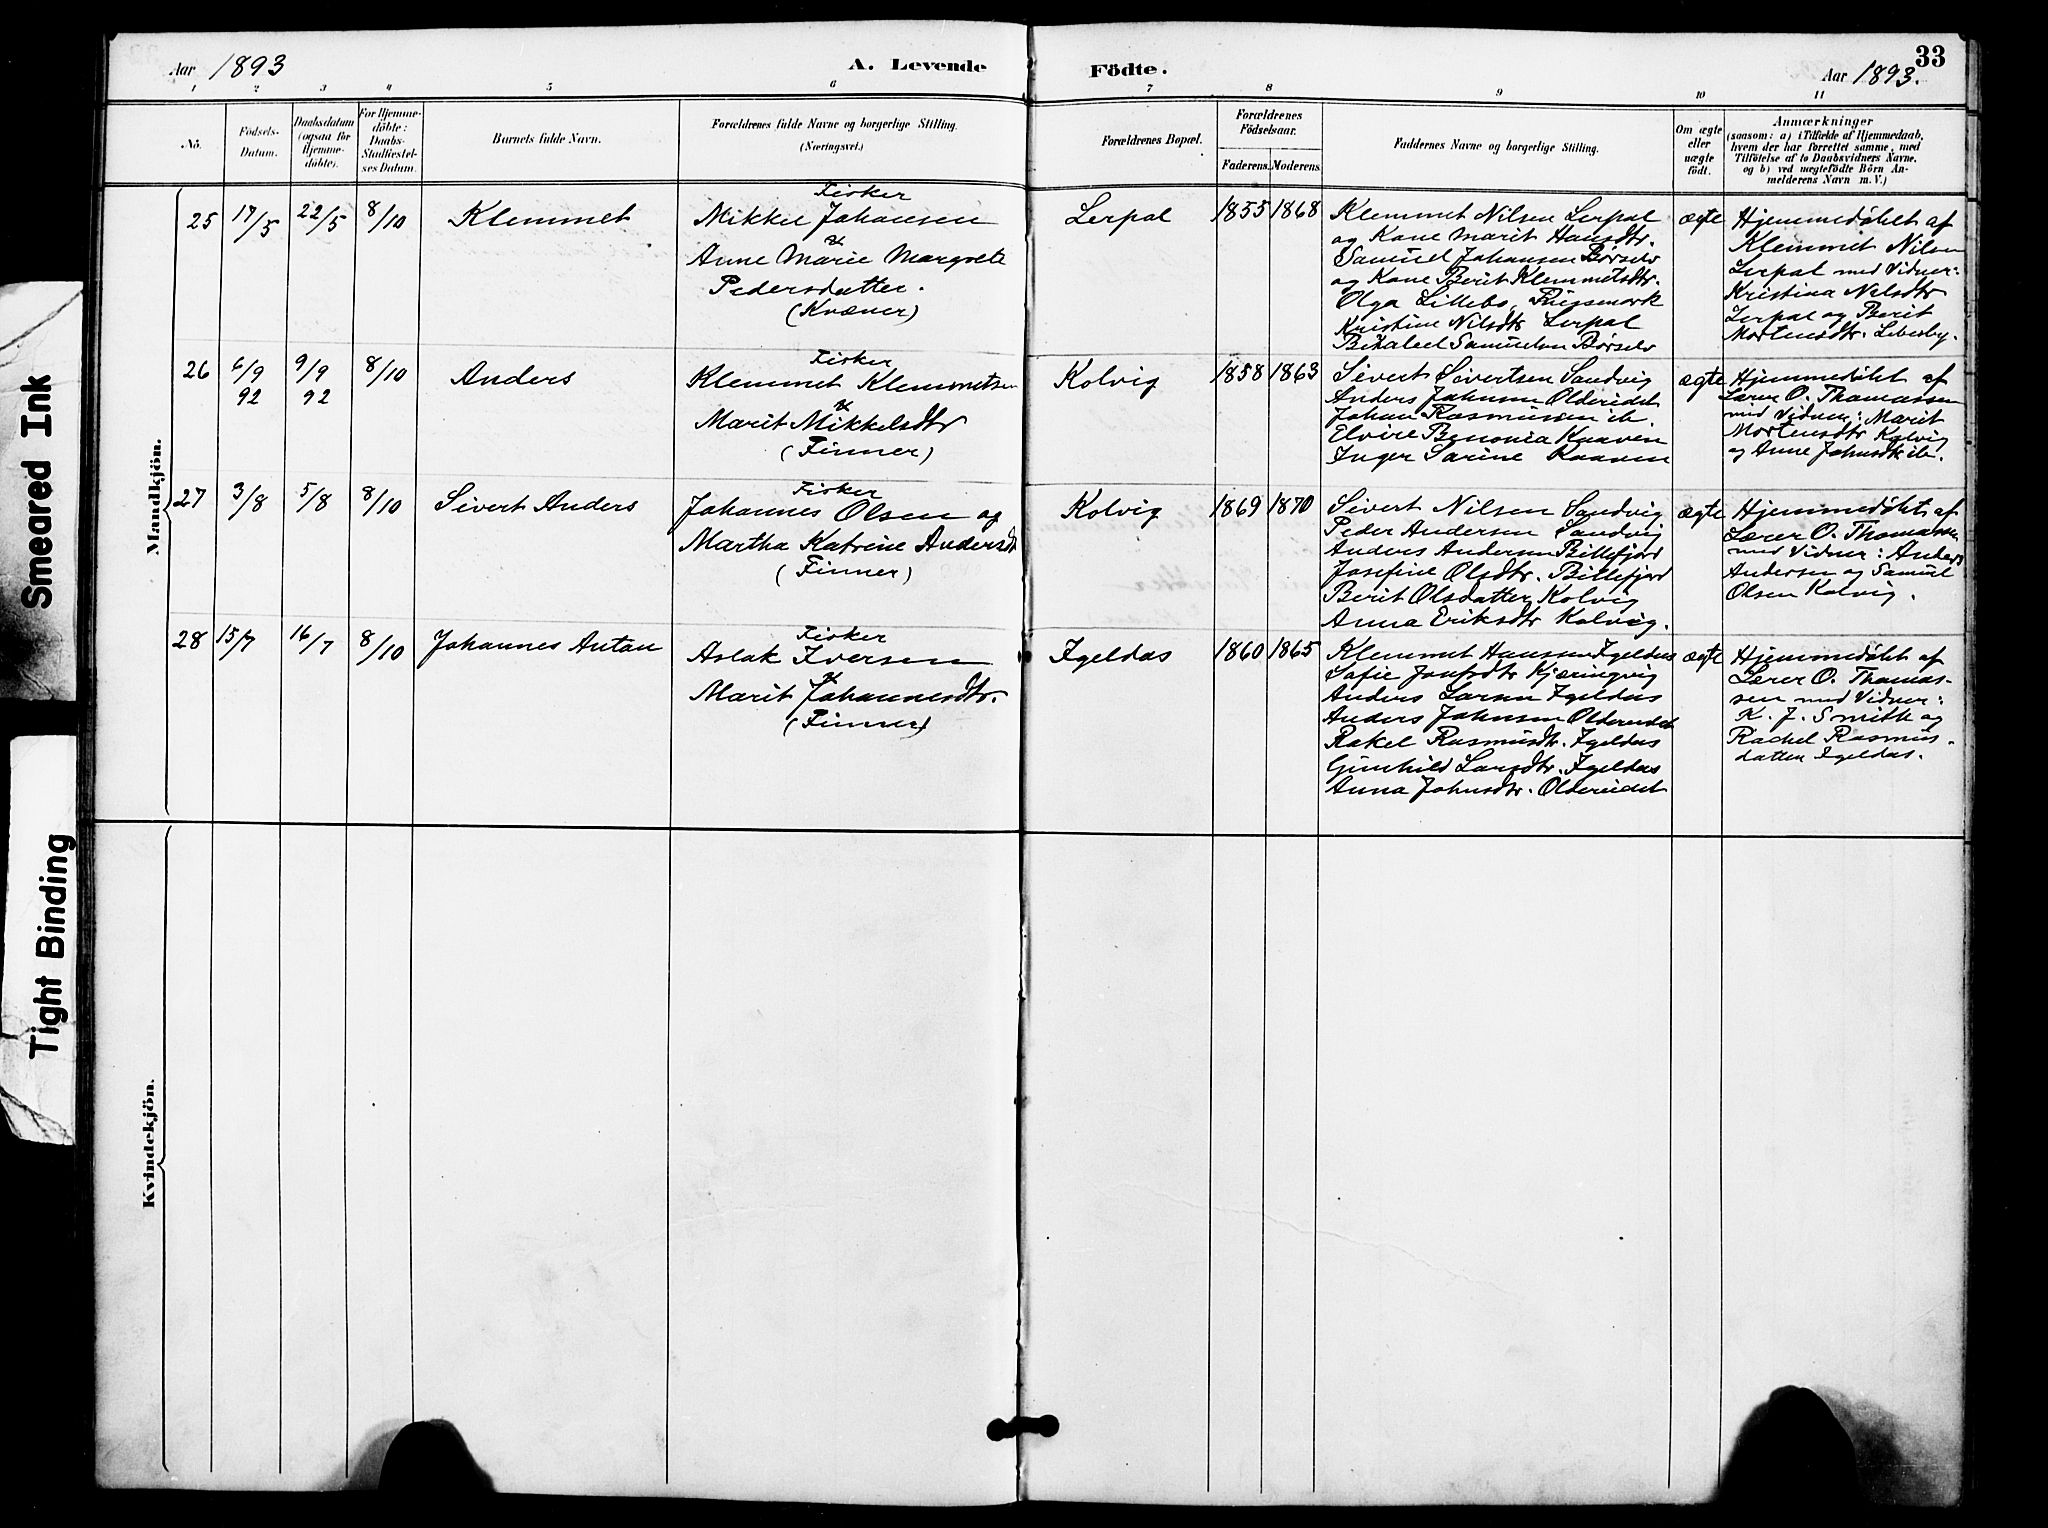 Smeared Ink
Tight Binding
Aar 1893
A. Levende
Födte.
33
Aar 1893.
1 2 3 4 5 6 7 8 9 10 11
No.
Födsels-
Datum.
Daabsdatum
(ogsaa for
Hjemme-
døbte).
For Hjemme-
døbte:
Daabs-
Stadfæstel-
ses Datum.
Barnets fulde Navn.
Forældrenes fulde Navne og borgerlige Stilling.
(Næringsvei.)
Forældrenes Bopæl.
Forældrenes
Födselsaar.
Faderens. Moderens.
Faddernes Navne og borgerlige Stilling.
Om ægte
eller
uægte
födt.
Anmærkninger
(saasom: a) i Tilfælde af Hjemmedaab,
hvem der har forrettet samme, med
Tilföielse af to Daabsvidners Navne,
og b) ved uægtefödte Börn An-
melderens Navn m. V.)
Mandkjön.
25 17/5 22/5 8/10
Klemmet
Fisker
Mikkel Johansen
&
Anne Marie Margrete
Pedersdatter.
(Kvæner)
Lerpol
1855 1868
Klemmet Nilsen Lerpol
og Kone Marit Hansdtr.
Samuel Johansen Børselv
og Kone Berit Klemmetsdtr.
Olga Lillebo,
Kristine Nilsdtr Lerpol
Samuelsen Børselv
ægte
Hjemmedøbt af
Klemmet Nilsen
Lerpol med Vidner:
Kristina Nilsdtr
Lerpol og Berit
Mortensdtr. Lebesby.
26 6/9 92 9/9 92 8/10
Anders
Fisker
Klemmet Klemmetsen
&
Marit Mikkelsdtr
(Finner)
Kolvig
1858 1863
Sivert Sivertsen Sandvig
Anders Johnsen Oldereidet
Johan Rasmussen ib.
Elvire Benonia Kaaven
Inger Sarine Kaaven
ægte
Hjemmedøbt af
Lærer O. Thomassen
med Vidner: Marit
Mortensdtr Kolvig
og Anne Johnsdtr ib.
27 3/8 5/8 8/10
Sivert Anders
Fisker
Johannes Olsen og
Martha Katrine Andersdt
(Finner)
Kolvig
1869 1870
Sivert Nilsen Sandvig
Peder Andersen Sandvig
Anders Andersen Billefjord
Josefine Olsdtr. Billefjord
Berit Olsdatter Kolvig
Anna Eriksdtr Kolvig.
ægte
Hjemmedøbt af
Lærer O. Thomassen
med Vidner: Anders
Andersen og Samuel
Olsen Kolvig.
28 15/7 16/7 8/10
Johannes Anton
Fisker
Aslak Iversen
&
Marit Johannesdtr.
(Finner)
Igeldas
1860 1865
Klemmet Hansen Igeldas
Sofie Josefsdtr Kjæringvig
Anders Larsen Igeldas
Anders Johnsen Oldereidet
Rakel Rasmusdtr. Igeldas
Gunhild Larsdtr. Igeldas
Anna Johnsdtr. Oldereidet
ægte
Hjemmedøbt af
Lærer O. Thomas-
sen med Vidner:
K. J. Smith og
Rachel Rasmus-
datter Igeldas.
Kvindekjön.